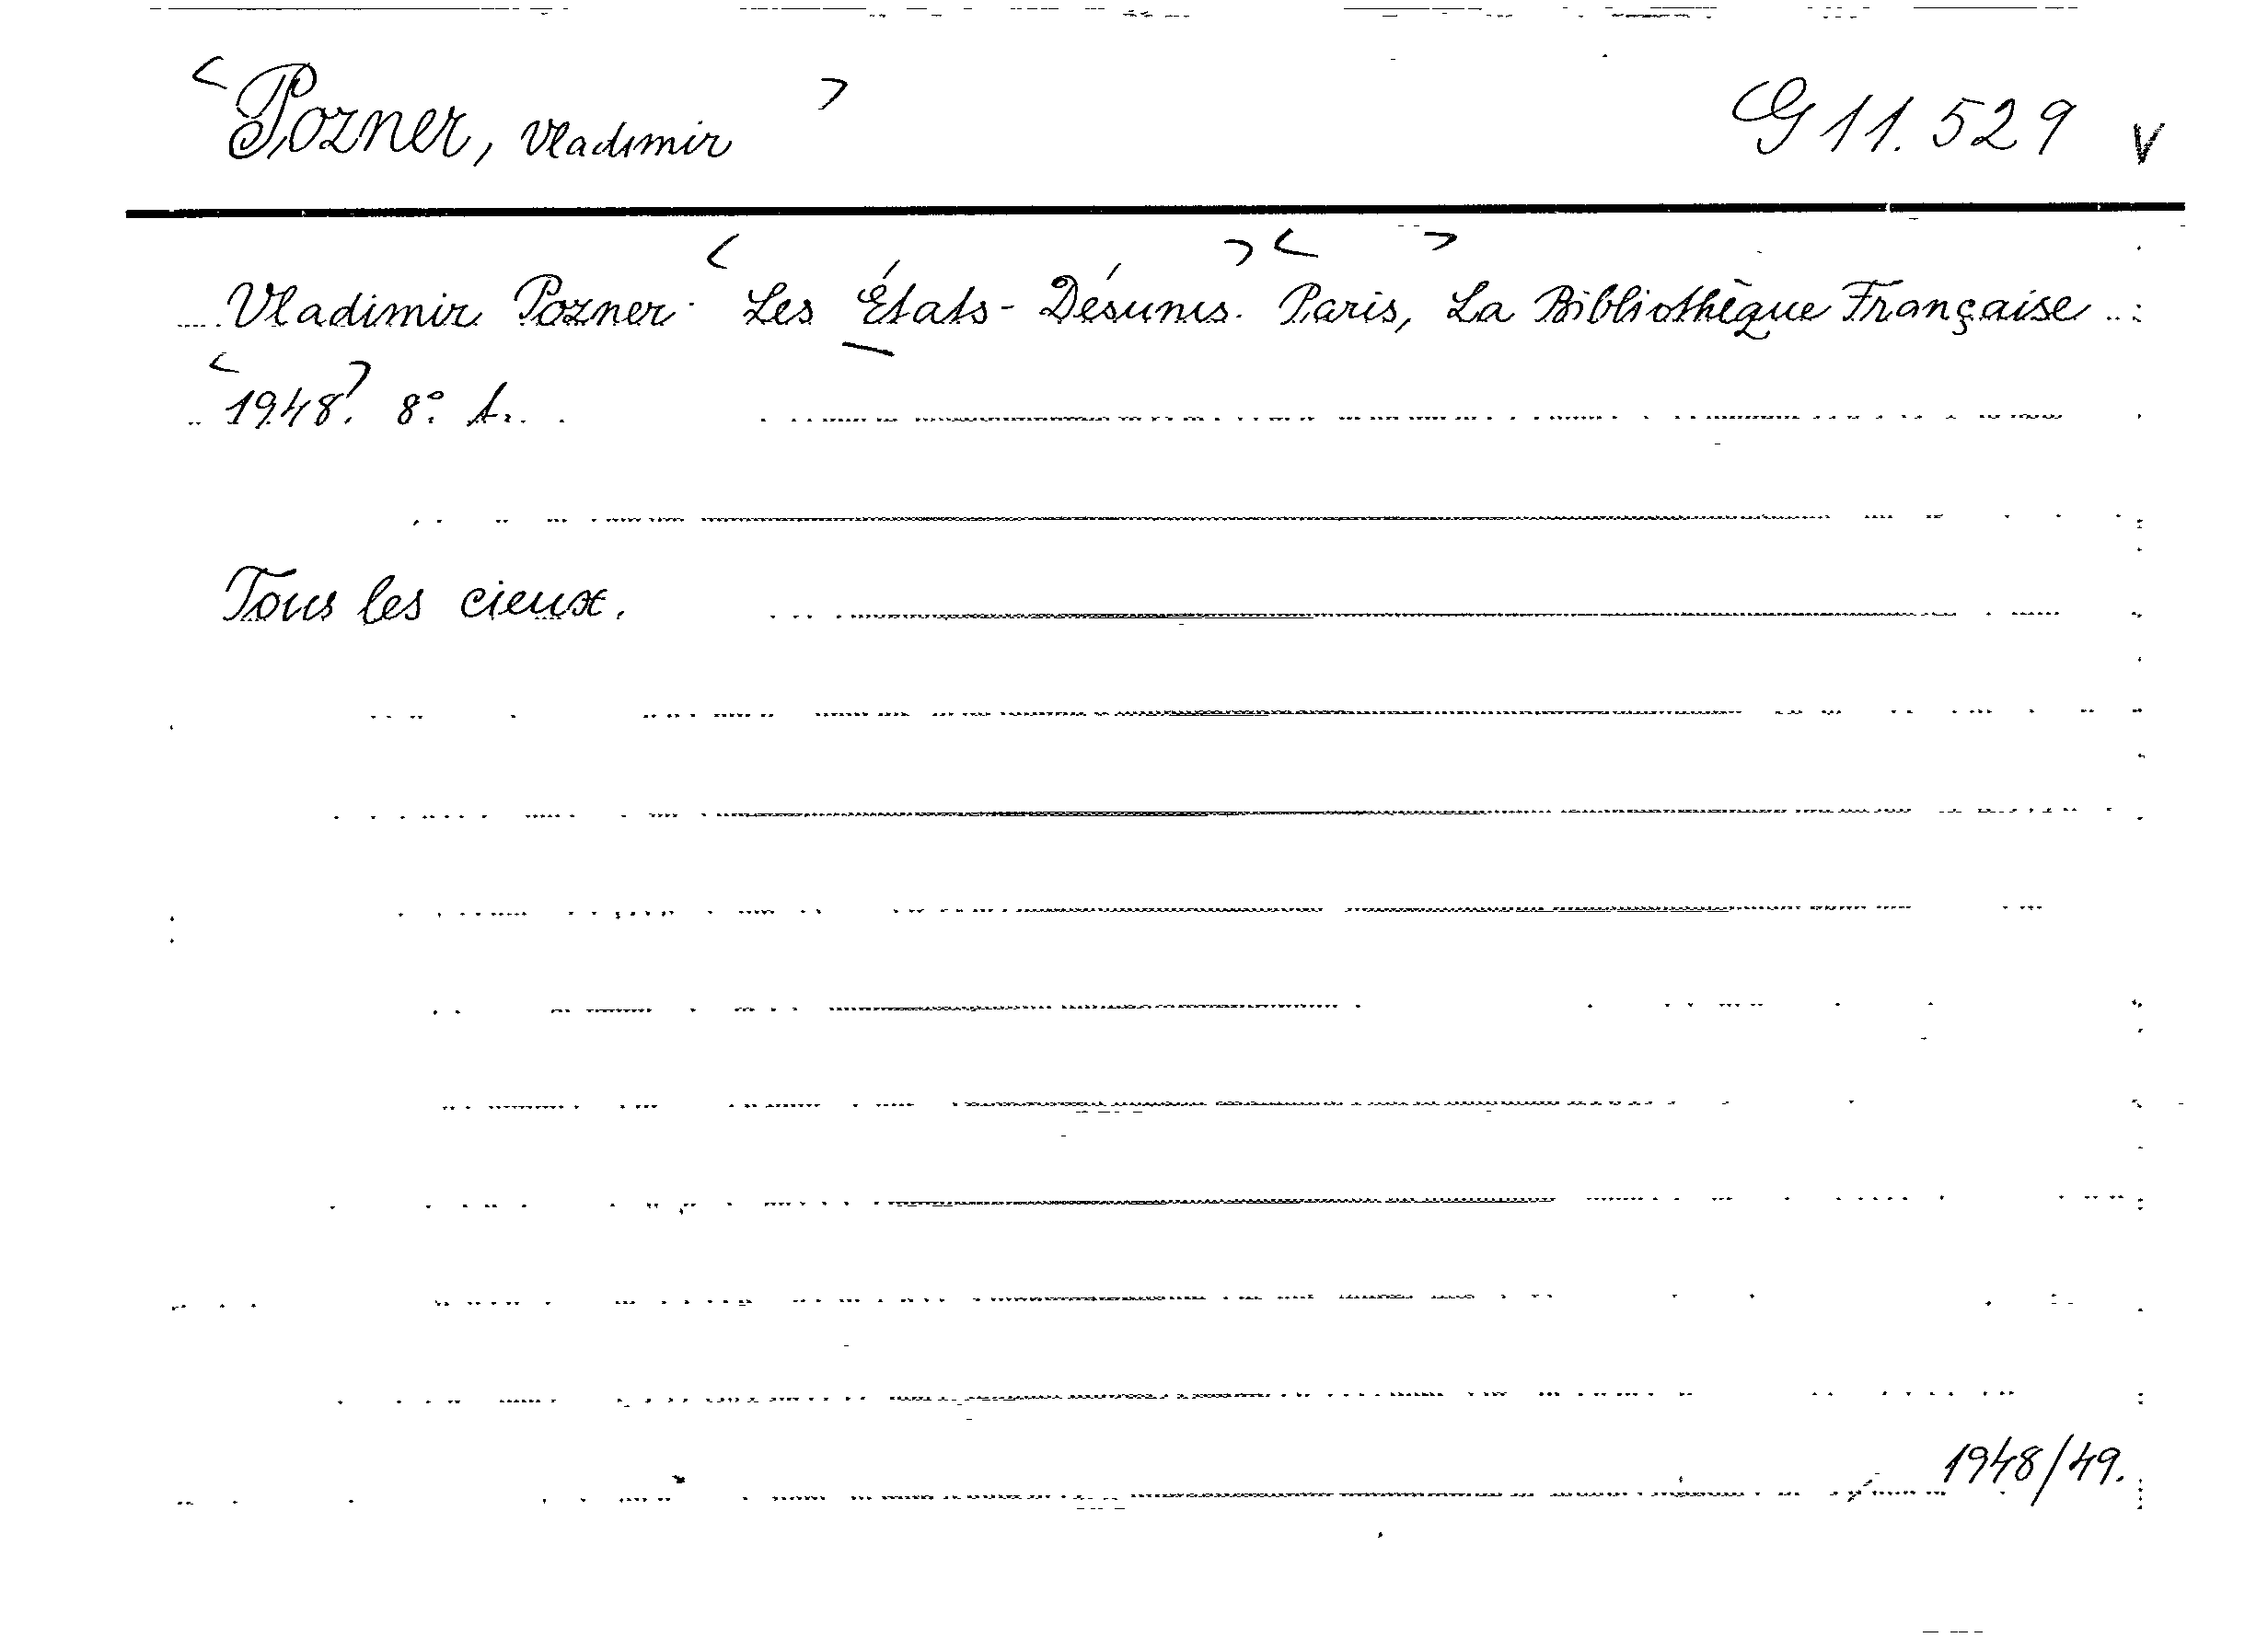 <Pozner, Vladimir> G 11.529 V
Vladimir Pozner. <Les États-Désunis.> <Paris,> La Bibliothèque Française
<1948>. 8° A.
Tous les cieux.
1948/49.